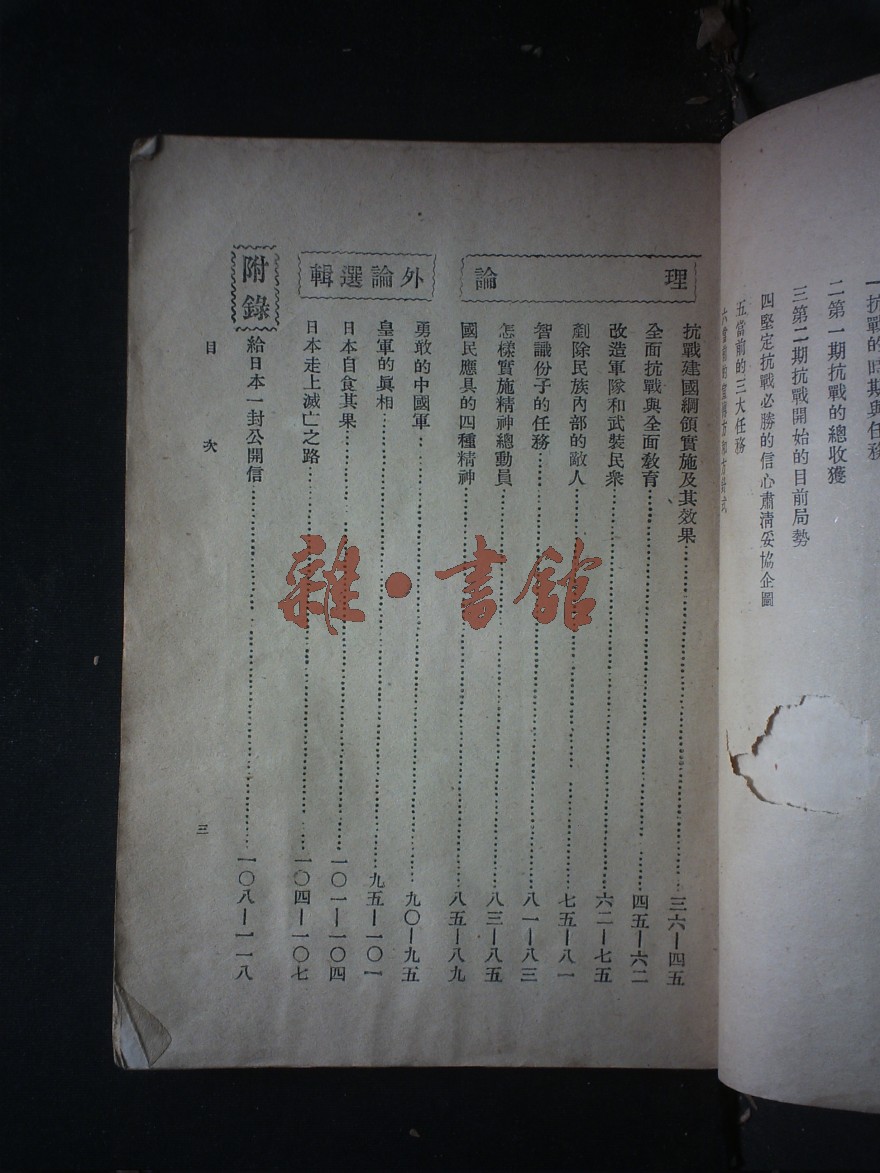 一抗戰的時期與任務
二第一期抗戰的總收獲
三第二期抗戰開始的目前局勢
四堅定抗戰必勝的信心肅清妥協企圖
五當前的三大任務
理論
抗戰建國綱領實施及其效果……三六—四五
全面抗戰與全面教育……四五—六二
改造軍隊和武裝民衆……六二—七五
剷除民族內部的敵人……七五—八一
智識份子的任務……八一—八三
怎樣實施精神總動員……八三—八五
國民應具的四種精神……八五—八九
外論選輯
勇敢的中國軍……九〇—九五
皇軍的眞相……九五—一〇一
日本自食其果……一〇一—一〇四
日本走上滅亡之路……一〇四—一〇七
附錄
給日本一封公開信……一〇八—一一八
目次
三
雜·書館